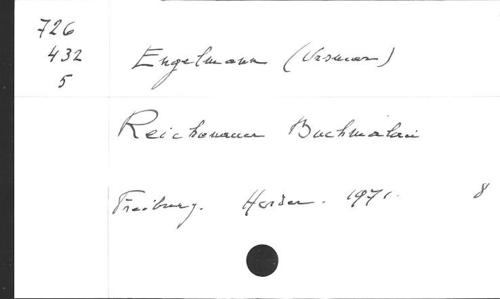 726
432
5
Engelmann (Ursmar)
Reichenauer Buchmalerei
Freiburg. Herder. 1971. 8